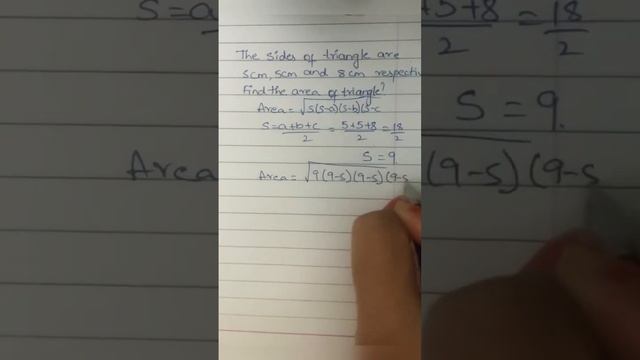 The sides of triangle are
5cm, 5cm and 8cm respectiv
Find the area of triangle?
Area = √s(s-a)(s-b)(s-c
S = a+b+c/2 = 5+5+8/2 = 18/2
S = 9
Area = √9(9-5)(9-5)(9-5